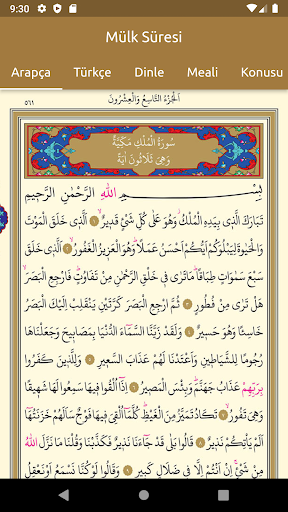 9:30
Mülk Sûresi
Arapça Türkçe Dinle Meali Konusu
اَلْجُزْءُ التَّاسِعُ وَالْعِشْرُونَ ٥٦١
سُورَةُ الْمُلْكِ مَكِّيَّةٌ
وَهِيَ ثَلَاثُونَ اٰيَةً
بِسْمِ اللّٰهِ الرَّحْمٰنِ الرَّحٖيمِ
تَبَارَكَ الَّذٖي بِيَدِهِ الْمُلْكُ وَهُوَ عَلٰى كُلِّ شَيْءٍ قَدٖيرٌۙ ١ اَلَّذٖي خَلَقَ الْمَوْتَ
وَالْحَيٰوةَ لِيَبْلُوَكُمْ اَيُّكُمْ اَحْسَنُ عَمَلًاۜ وَهُوَ الْعَزٖيزُ الْغَفُورُۙ ٢ اَلَّذٖي خَلَقَ
سَبْعَ سَمٰوَاتٍ طِبَاقًاۜ مَا تَرٰى فٖي خَلْقِ الرَّحْمٰنِ مِنْ تَفَاوُتٍۜ فَارْجِعِ الْبَصَرَۙ
هَلْ تَرٰى مِنْ فُطُورٍ ٣ ثُمَّ ارْجِعِ الْبَصَرَ كَرَّتَيْنِ يَنْقَلِبْ اِلَيْكَ الْبَصَرُ
خَاسِئًا وَهُوَ حَسٖيرٌ ٤ وَلَقَدْ زَيَّنَّا السَّمَٓاءَ الدُّنْيَا بِمَصَابٖيحَ وَجَعَلْنَاهَا
رُجُومًا لِلشَّيَاطٖينِ وَاَعْتَدْنَا لَهُمْ عَذَابَ السَّعٖيرِ ٥ وَلِلَّذٖينَ كَفَرُوا
بِرَبِّهِمْ عَذَابُ جَهَنَّمَۜ وَبِئْسَ الْمَصٖيرُ ٦ اِذَٓا اُلْقُوا فٖيهَا سَمِعُوا لَهَا شَهٖيقًا
وَهِيَ تَفُورُۙ ٧ تَكَادُ تَمَيَّزُ مِنَ الْغَيْظِۜ كُلَّمَٓا اُلْقِيَ فٖيهَا فَوْجٌ سَاَلَهُمْ خَزَنَتُهَٓا
اَلَمْ يَأْتِكُمْ نَذٖيرٌ ٨ قَالُوا بَلٰى قَدْ جَٓاءَنَا نَذٖيرٌ فَكَذَّبْنَا وَقُلْنَا مَا نَزَّلَ اللّٰهُ
مِنْ شَيْءٍۚ اِنْ اَنْتُمْ اِلَّا فٖي ضَلَالٍ كَبٖيرٍ ٩ وَقَالُوا لَوْ كُنَّا نَسْمَعُ اَوْ نَعْقِلُ